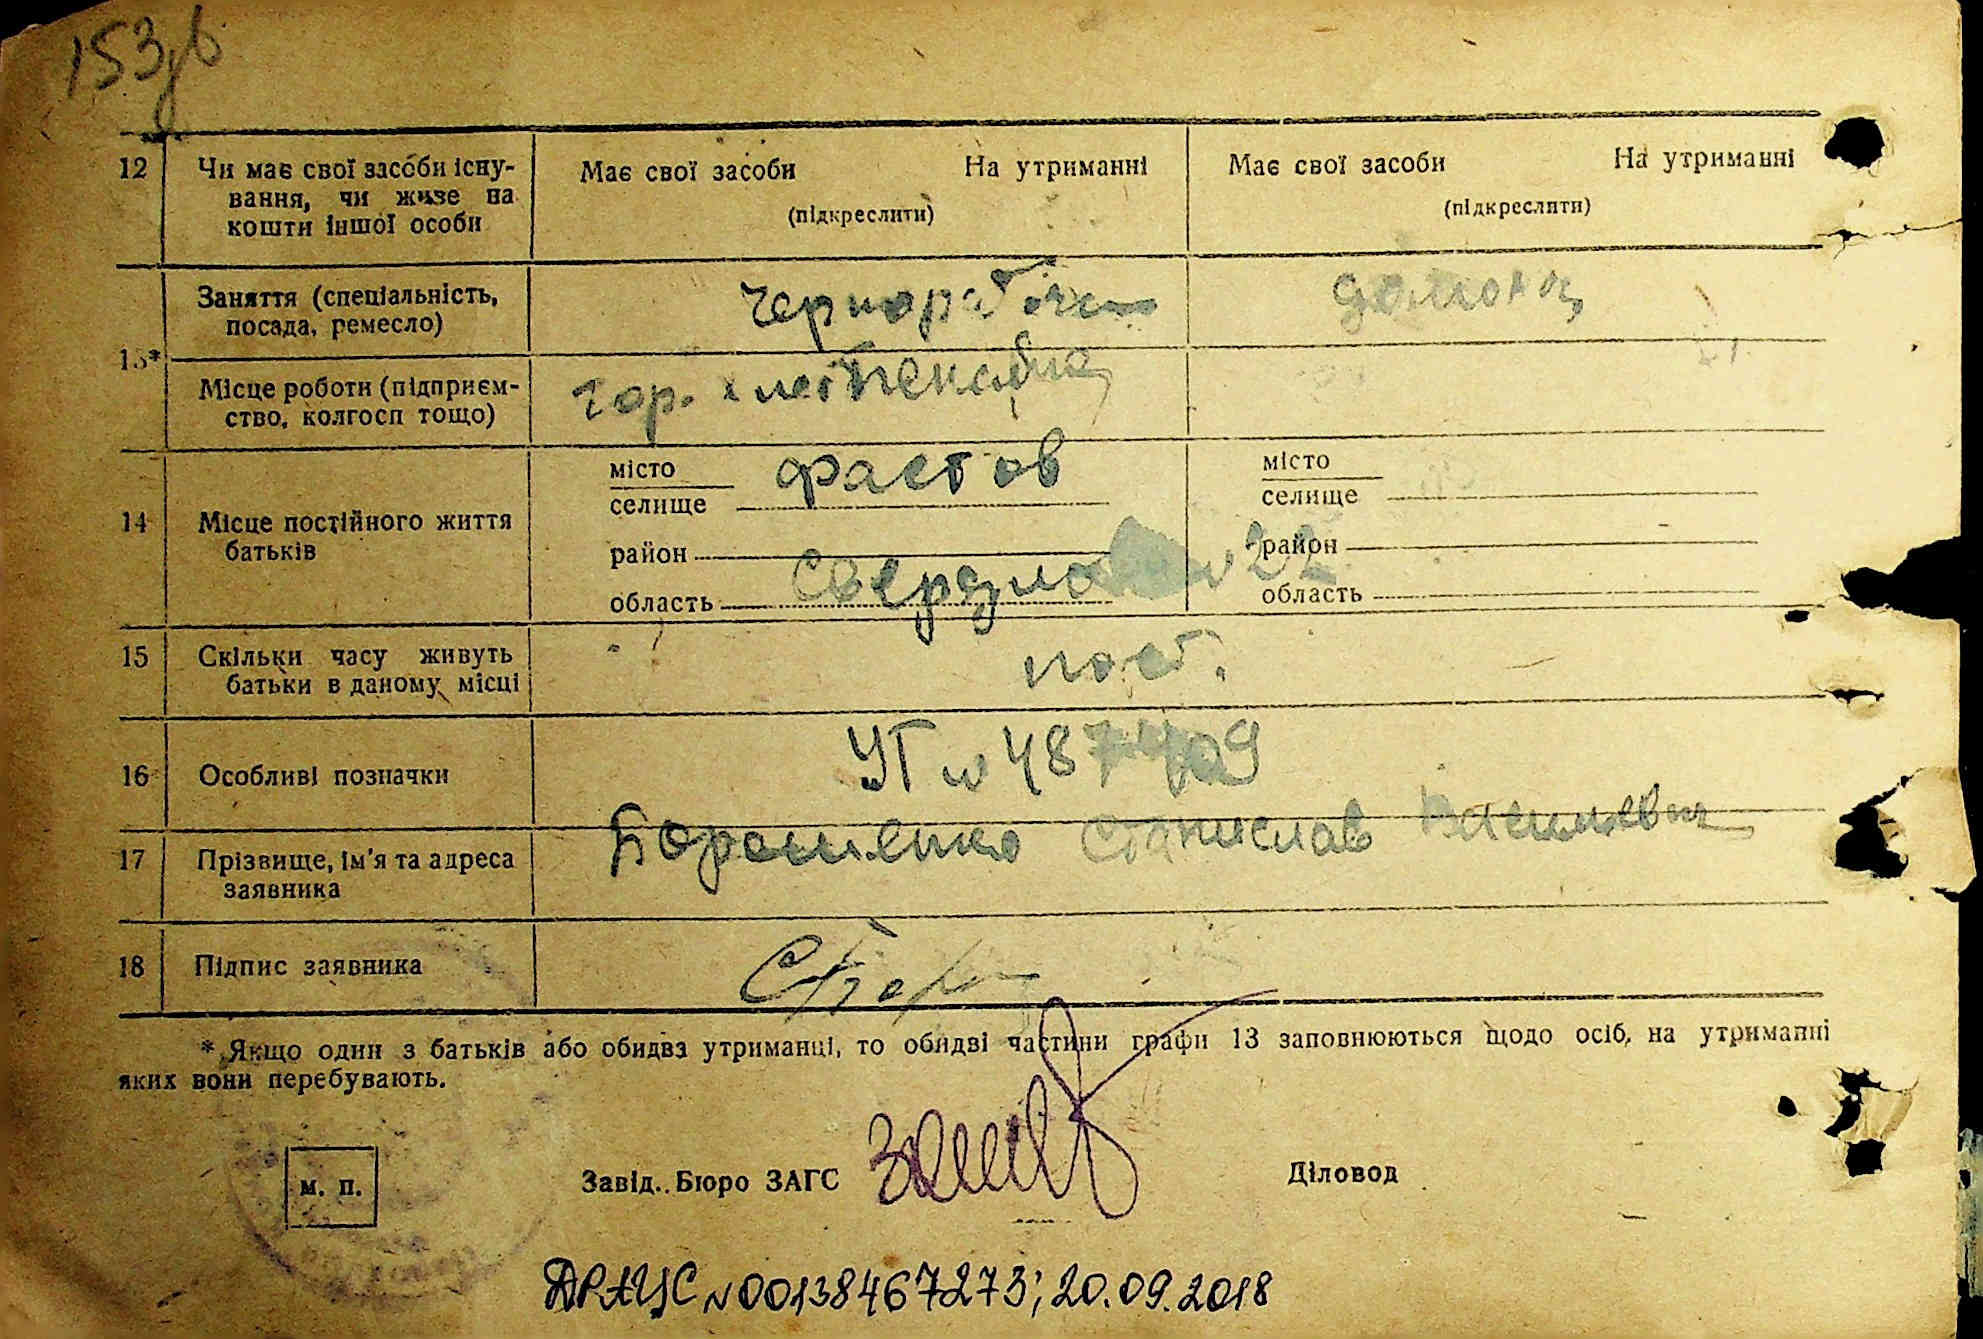 153зв
12 Чи має свої засоби існу- Має свої засоби На утриманні Має свої засоби На утриманні
вання, чи живе на (підкреслити) (підкреслити)
кошти іншої особи
Заняття (спеціальність, чернорабоч домохоз
посада, ремесло)
13*
Місце роботи (підприєм- гор. хлебпекарня
ство, колгосп тощо)
місто Фастов місто
селище селище
14 Місце постійного життя
батьків район район
Свердлова № 22
область область
15 Скільки часу живуть пост.
батьки в даному місці
16 Особливі позначки УГ № 487409
17 Прізвище, ім'я та адреса Станислав Васильевич
заявника
18 Підпис заявника
* Якщо один з батьків або обидва утриманці, то обидві частини графи 13 заповнюються щодо осіб, на утриманні
яких вони перебувають.
м. п. Завід. Бюро ЗАГС Діловод
ДРАЦС №00138467273; 20.09.2018